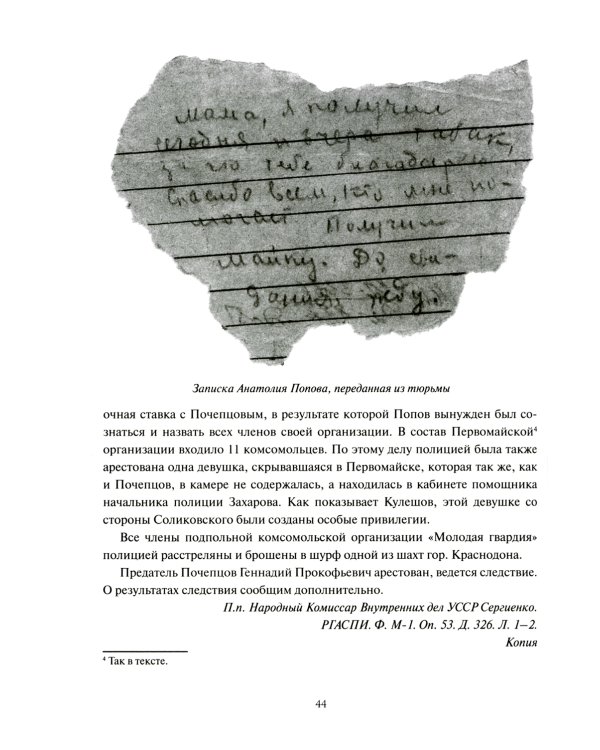 Мама, я получил
сегодня и вчера табак,
за что тебе благодарен
Спасибо всем, кто мне по-
могает Получил
майку. До сви-
дания. жду.
Записка Анатолия Попова, переданная из тюрьмы
очная ставка с Почепцовым, в результате которой Попов вынужден был со-
знаться и назвать всех членов своей организации. В состав Первомайской⁴
организации входило 11 комсомольцев. По этому делу полицией была также
арестована одна девушка, скрывавшаяся в Первомайске, которая так же, как
и Почепцов, в камере не содержалась, а находилась в кабинете помощника
начальника полиции Захарова. Как показывает Кулешов, этой девушке со
стороны Соликовского были созданы особые привилегии.
Все члены подпольной комсомольской организации «Молодая гвардия»
полицией расстреляны и брошены в шурф одной из шахт гор. Краснодона.
Предатель Почепцов Геннадий Прокофьевич арестован, ведется следствие.
О результатах следствия сообщим дополнительно.
П.п. Народный Комиссар Внутренних дел УССР Сергиенко.
РГАСПИ. Ф. М-1. Оп. 53. Д. 326. Л. 1–2.
Копия
⁴ Так в тексте.
44